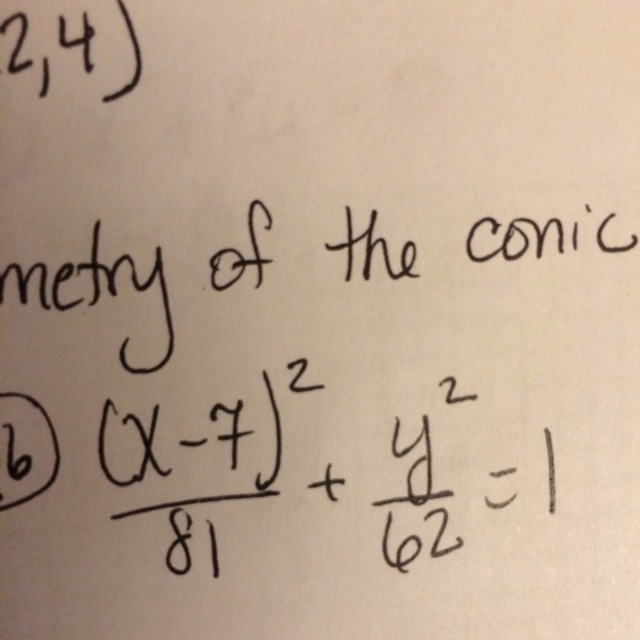 2,4)
metry of the conic
b) (x-7)²/81 + y²/62 = 1